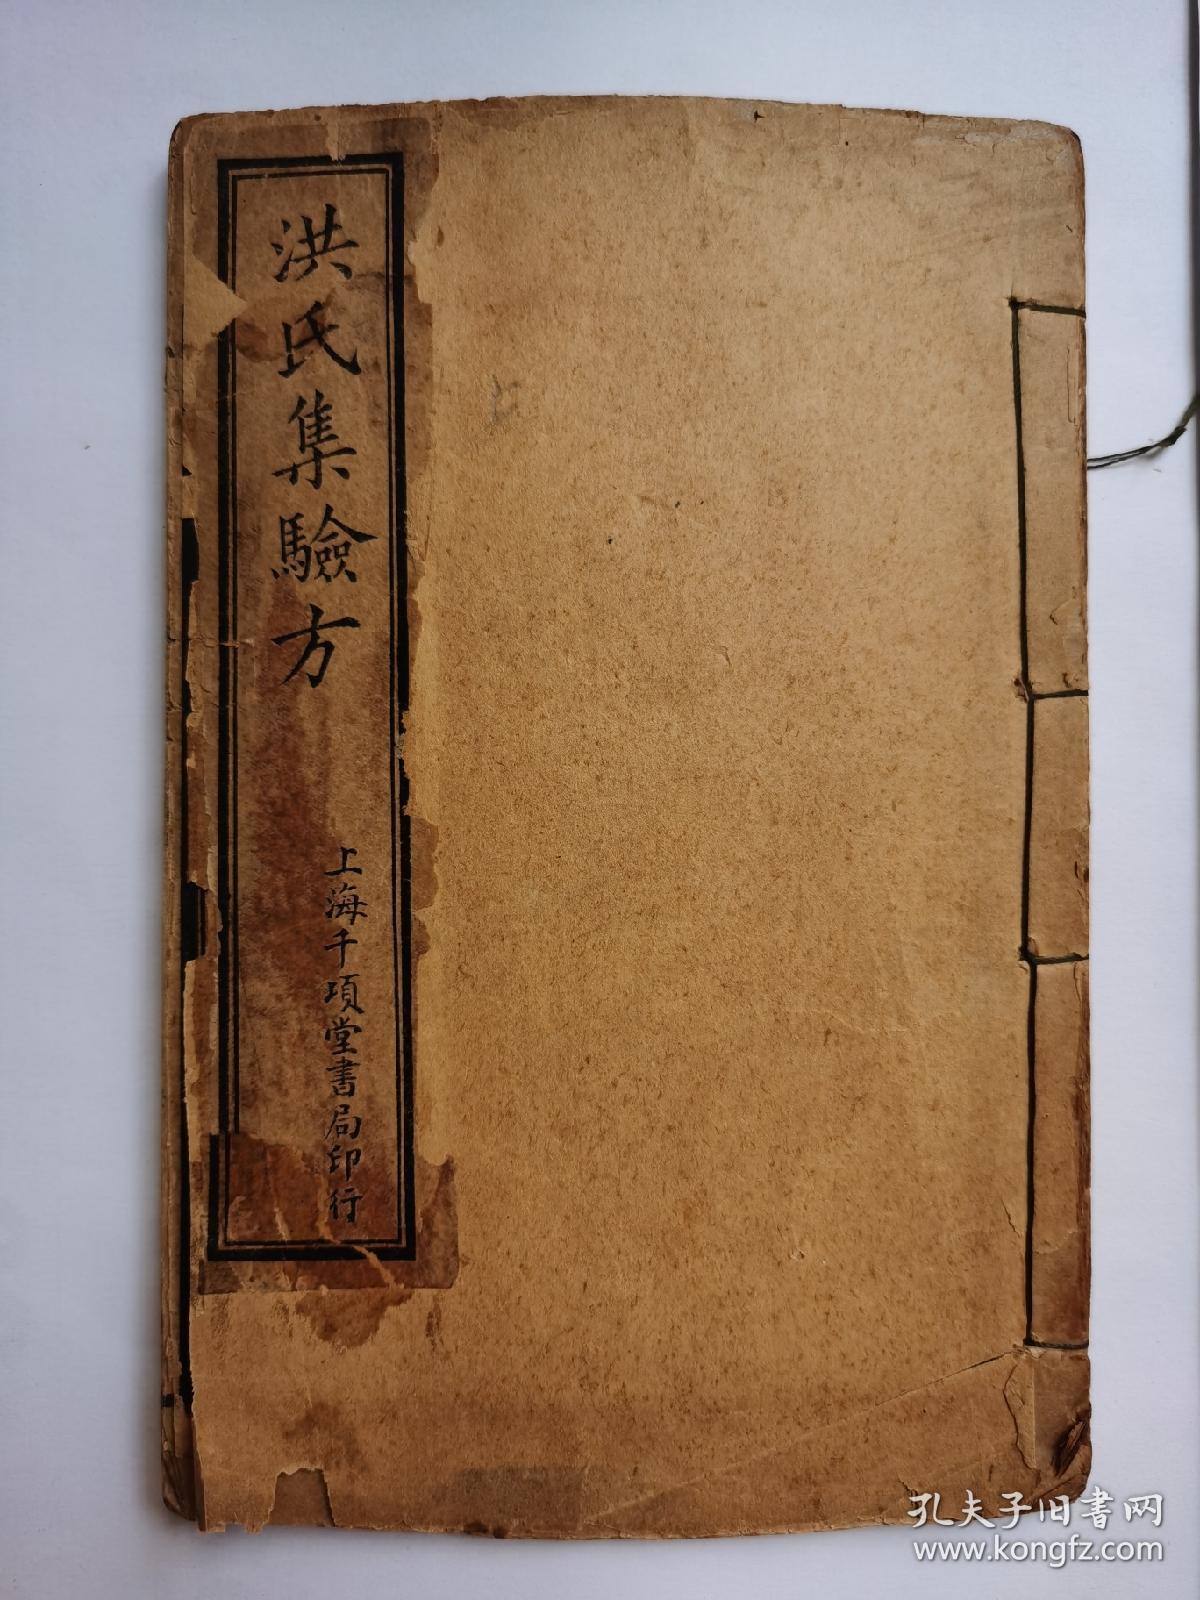 洪氏集驗方
上海千項堂書局印行
孔夫子旧书网
www.kongfz.com